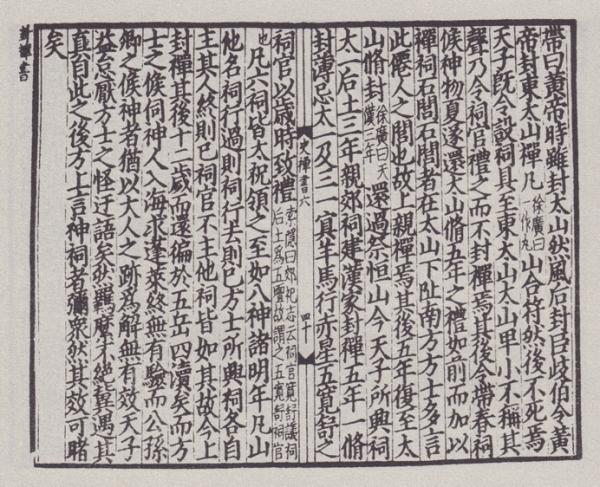 帶曰黃帝時雖封太山然風后封巨歧伯令黃
帝封東太山禪凡徐廣曰一作丸山合符然後不死焉
天子旣令設祠具至東太山太山卑小不稱其
聲乃令祠官禮之而不封禪焉其後令帶奉祠
候神物夏遂還太山脩五年之禮如前而加以
禪祠石閭石閭者在太山下阯南方方士多言
此僊人之閭也故上親禪焉其後五年復至太
山脩封徐廣曰天漢三年還過祭恒山今天子所興祠
太一后土三年親郊祠建漢家封禪五年一脩
封薄忌太一及三一冥羊馬行赤星五寬舒之
史禪書六 四十
祠官以歲時致禮索隱曰郊祀志云祠官寬舒議祠后土爲五壇故謂之五寬舒祠官
也凡六祠皆太祝領之至如八神諸明年凡山
他名祠行過則祠行去則已方士所興祠各自
主其人終則已祠官不主他祠皆如其故今上
封禪其後十二歲而還徧於五岳四瀆矣而方
士之候伺神人入海求蓬萊終無有驗而公孫
卿之候神者猶以大人之跡爲解無有效天子
益怠厭方士之怪迂語矣然羈縻不絕冀遇其
眞自此之後方士言神祠者彌衆然其效可睹
矣
封禪書